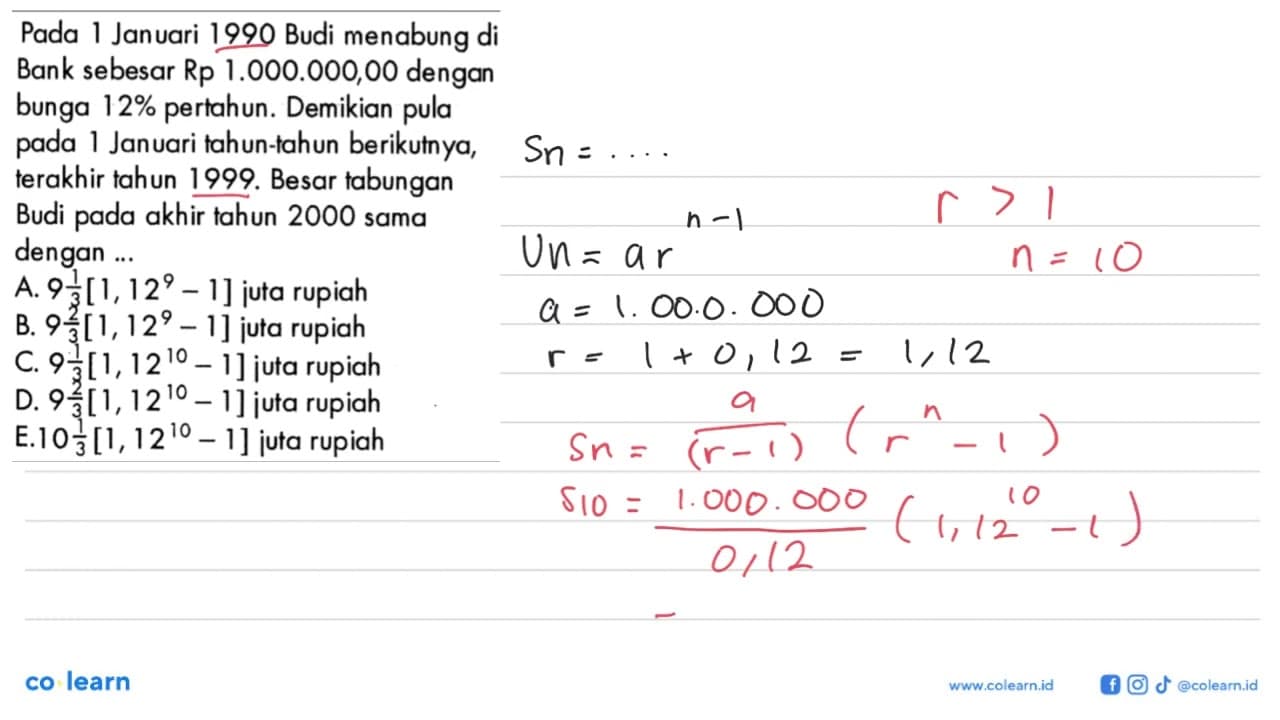 Pada 1 Januari 1990 Budi menabung di
Bank sebesar Rp 1.000.000,00 dengan
bunga 12% pertahun. Demikian pula
pada 1 Januari tahun-tahun berikutnya,
terakhir tahun 1999. Besar tabungan
Budi pada akhir tahun 2000 sama
dengan ...
A. 9 1/3 [1, 12⁹ – 1] juta rupiah
B. 9 2/3 [1, 12⁹ – 1] juta rupiah
C. 9 1/3 [1, 12¹⁰ – 1] juta rupiah
D. 9 2/3 [1, 12¹⁰ – 1] juta rupiah
E. 10 1/3 [1, 12¹⁰ – 1] juta rupiah
Sn = ....
r > 1
Un = ar^(n-1)
n = 10
a = 1.000.000
r = 1 + 0,12 = 1,12
Sn = a/(r-1) (r^n - 1)
S10 = 1.000.000/0,12 (1,12^10 - 1)
=
co learn
www.colearn.id
@colearn.id